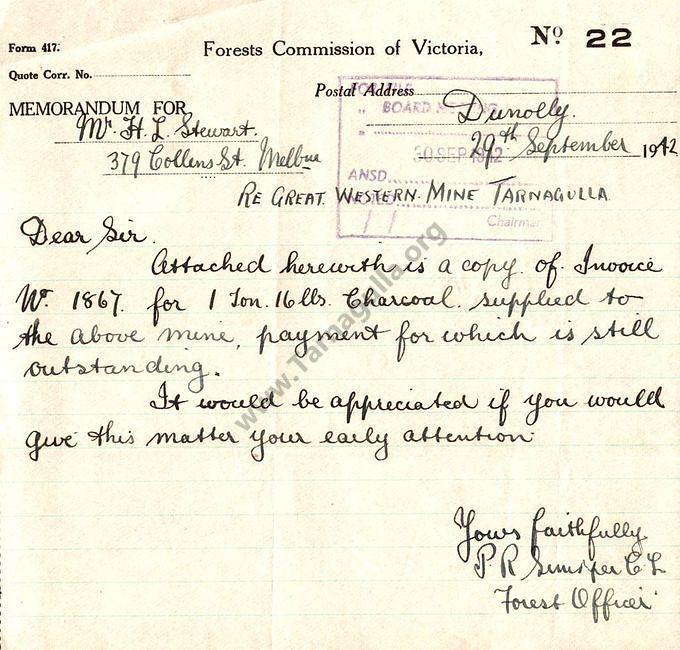 Form 417.
Forests Commission of Victoria,
No 22
Quote Corr. No.
Postal Address
MEMORANDUM FOR
Mr. H. L. Stewart.
379 Collins St. Melbne
Dunolly.
29th September 1942
FOR FILE
" BOARD MEETING
"
30 SEP 1942
ANSD.
NOTED
/ /
Chairman
RE GREAT WESTERN MINE TARNAGULLA
Dear Sir.
Attached herewith is a copy of Invoice
No. 1867. for 1 Ton. 16 lbs. Charcoal supplied to
the above mine, payment for which is still
outstanding.
It would be appreciated if you would
give this matter your early attention
Yours faithfully
P. R
Forest Officer
www.Tarnagulla.org